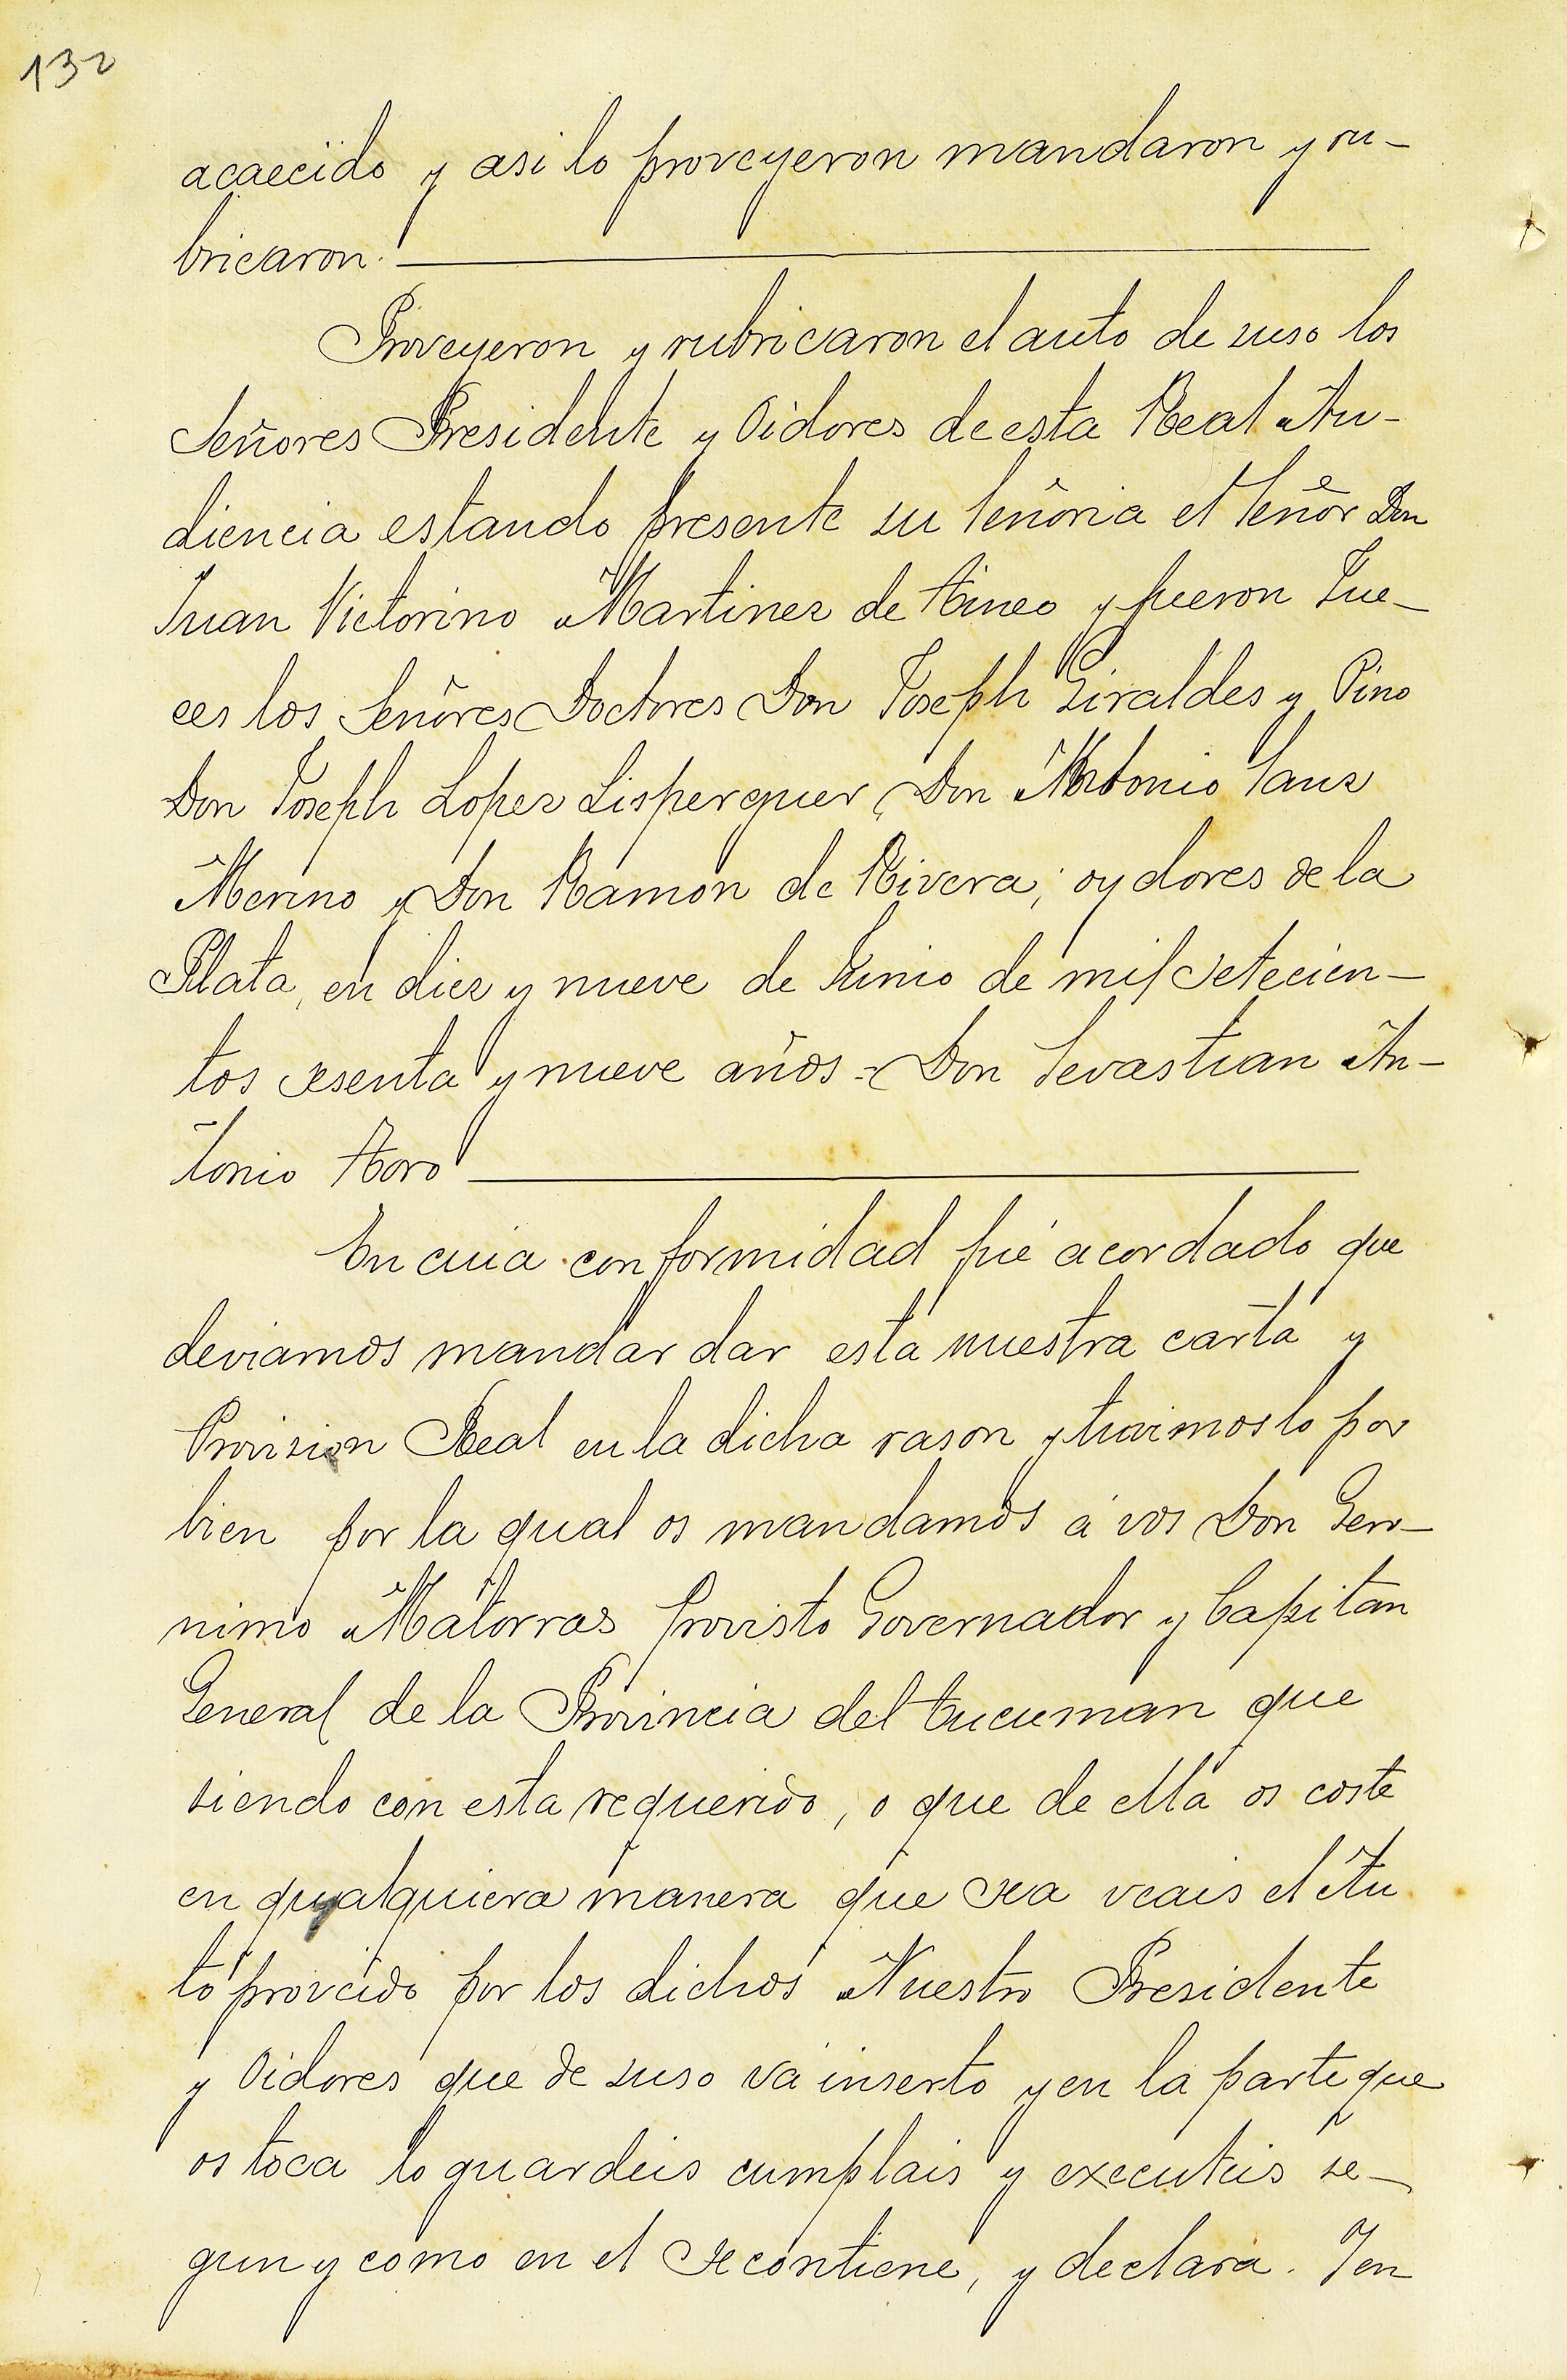 132
acaecido y asi lo proveyeron mandaron y ru-
bricaron.
Proveyeron y rubricaron el auto de suso los
Señores Presidente y Oidores de esta Real Au-
diencia estando presente su Señoria el Señor Don
Juan Victorino Martinez de Tineo y fueron Jue-
ces los Señores Doctores Don Joseph Giraldes y Pino
Don Joseph Lopez Lisperguer, Don Antonio Sanz
Merino y Don Ramon de Rivera; oydores de la
Plata, en diez y nueve de Junio de mil setecien-
tos sesenta y nueve años = Don Sevastian An-
tonio Toro
En cuia conformidad fué acordado que
deviamos mandar dar esta nuestra carta y
Provision Real en la dicha rason y tuvimoslo por
bien por la qual os mandamos á vos Don Gero-
nimo Matorras Provisto Governador y Capitan
General de la Provincia del Tucuman que
siendo con esta requerido, o que de ella os coste
en qualquiera manera que sea veais el Au
to proveido por los dichos Nuestro Presidente
y Oidores que de suso vá inserto y en la parte que
os toca lo guardeis cumplais y executeis se-
gun y como en el se contiene, y declara. Y en